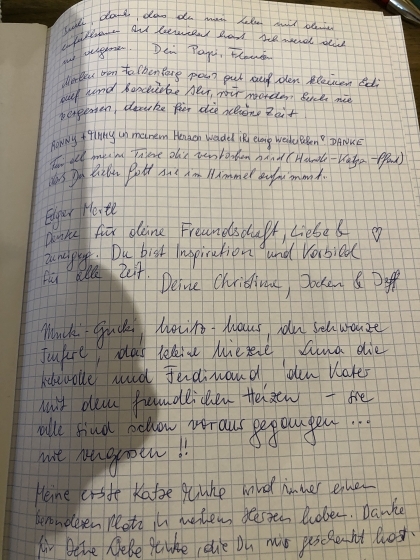 danke, dass du mein Leben mit deiner
Art bereichert hast. Ich werde dich
nie vergessen. Dein Papi, Florian
von Falkenberg pass gut auf den kleinen Edi
auf und Ali, wir werden Euch nie
vergessen, danke für die schöne Zeit
RONNY + in meinem Herzen werdet ihr ewig weiterleben! DANKE
Für all meine Tiere die verstorben sind (Hunde-Katze-Pferd)
dass Der liebe Gott sie im Himmel aufnimmt.
Edgar
Danke für deine Freundschaft, Liebe &
Du bist Inspiration und Vorbild
für alle Zeit.
Deine Christine, Jochen &
der schwarze
das kleine Luna die
und Ferdinand, der Kater
mit dem freundlichen Herzen - sie
alle sind schon voraus gegangen...
nie vergessen !!
Meine erste Katze wird immer einen
besonderen Platz in meinem Herzen haben. Danke
für Deine Liebe, die Du mir geschenkt hast